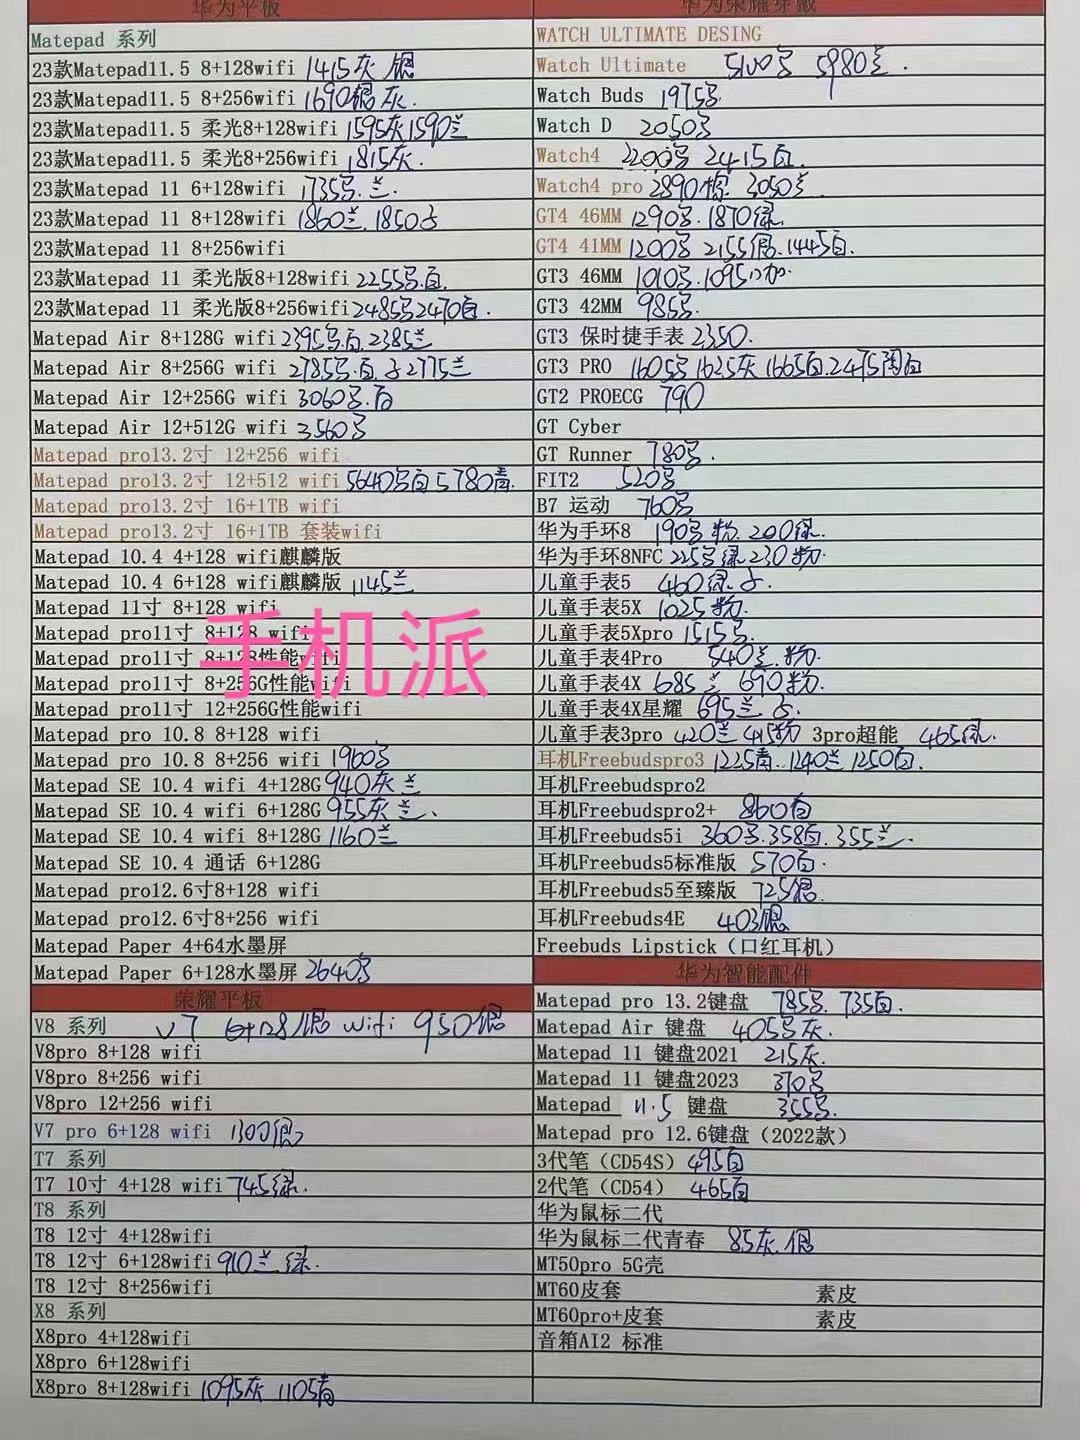 华为平板
Matepad 系列
23款Matepad11.5 8+128wifi 1415灰 银
23款Matepad11.5 8+256wifi 1690银灰.
23款Matepad11.5 柔光8+128wifi 1595灰1590兰
23款Matepad11.5 柔光8+256wifi 1815灰.
23款Matepad 11 6+128wifi 1735号.兰.
23款Matepad 11 8+128wifi 1860兰.1850
23款Matepad 11 8+256wifi
23款Matepad 11 柔光版8+128wifi 2255号.白.
23款Matepad 11 柔光版8+256wifi 2485号2470白.
Matepad Air 8+128G wifi 2395号白 2385兰
Matepad Air 8+256G wifi 2785号.白. 2775兰
Matepad Air 12+256G wifi 3060号.白
Matepad Air 12+512G wifi 3560号
Matepad pro13.2寸 12+256 wifi
Matepad pro13.2寸 12+512 wifi 5640号白 5780青.
Matepad pro13.2寸 16+1TB wifi
Matepad pro13.2寸 16+1TB 套装wifi
Matepad 10.4 4+128 wifi麒麟版
Matepad 10.4 6+128 wifi麒麟版 1145兰
Matepad 11寸 8+128 wifi
Matepad pro11寸 8+128 wifi
Matepad pro11寸 8+128性能wifi
Matepad pro11寸 8+256G性能wifi
Matepad pro11寸 12+256G性能wifi
Matepad pro 10.8 8+128 wifi
Matepad pro 10.8 8+256 wifi 1960号
Matepad SE 10.4 wifi 4+128G 940灰 兰
Matepad SE 10.4 wifi 6+128G 955灰 兰.
Matepad SE 10.4 wifi 8+128G 1160兰
Matepad SE 10.4 通话 6+128G
Matepad pro12.6寸8+128 wifi
Matepad pro12.6寸8+256 wifi
Matepad Paper 4+64水墨屏
Matepad Paper 6+128水墨屏 2640号
手机派
荣耀平板
V8 系列 V7 6+128银 wifi 950银
V8pro 8+128 wifi
V8pro 8+256 wifi
V8pro 12+256 wifi
V7 pro 6+128 wifi 1300银
T7 系列
T7 10寸 4+128 wifi 745绿.
T8 系列
T8 12寸 4+128wifi
T8 12寸 6+128wifi 910兰.绿.
T8 12寸 8+256wifi
X8 系列
X8pro 4+128wifi
X8pro 6+128wifi
X8pro 8+128wifi 1095灰 1105青
华为荣耀穿戴
WATCH ULTIMATE DESING
Watch Ultimate 5100号 5980兰.
Watch Buds 1975号
Watch D 2050号
Watch4 2200号 2415白.
Watch4 pro 2890棕. 3050兰
GT4 46MM 1290号.1870绿.
GT4 41MM 1200号 2155银.1445白.
GT3 46MM 1010号.1095
GT3 42MM 985号
GT3 保时捷手表 2350.
GT3 PRO 1605号 1625灰 1665白.2475陶白
GT2 PROECG 790
GT Cyber
GT Runner 780号.
FIT2 520号
B7 运动 760号
华为手环8 190号 粉.200绿.
华为手环8NFC 225号绿 230粉.
儿童手表5 460绿.
儿童手表5X 1025粉.
儿童手表5Xpro 1515号.
儿童手表4Pro 540兰.粉.
儿童手表4X 685兰 690粉.
儿童手表4X星耀 695兰
儿童手表3pro 420兰 415粉 3pro超能 465绿.
耳机Freebudspro3 1225青..1240兰 1250白.
耳机Freebudspro2
耳机Freebudspro2+ 860白
耳机Freebuds5i 360号.358白.355兰.
耳机Freebuds5标准版 570白.
耳机Freebuds5至臻版 725银
耳机Freebuds4E 403银
Freebuds Lipstick（口红耳机）
华为智能配件
Matepad pro 13.2键盘 785号 735白.
Matepad Air 键盘 405号灰.
Matepad 11 键盘2021 215灰.
Matepad 11 键盘2023 370号
Matepad 11.5 键盘 355号.
Matepad pro 12.6键盘（2022款）
3代笔（CD54S）495白
2代笔（CD54） 465白
华为鼠标二代
华为鼠标二代青春 85灰.银
MT50pro 5G壳
MT60皮套 素皮
MT60pro+皮套 素皮
音箱AI2 标准